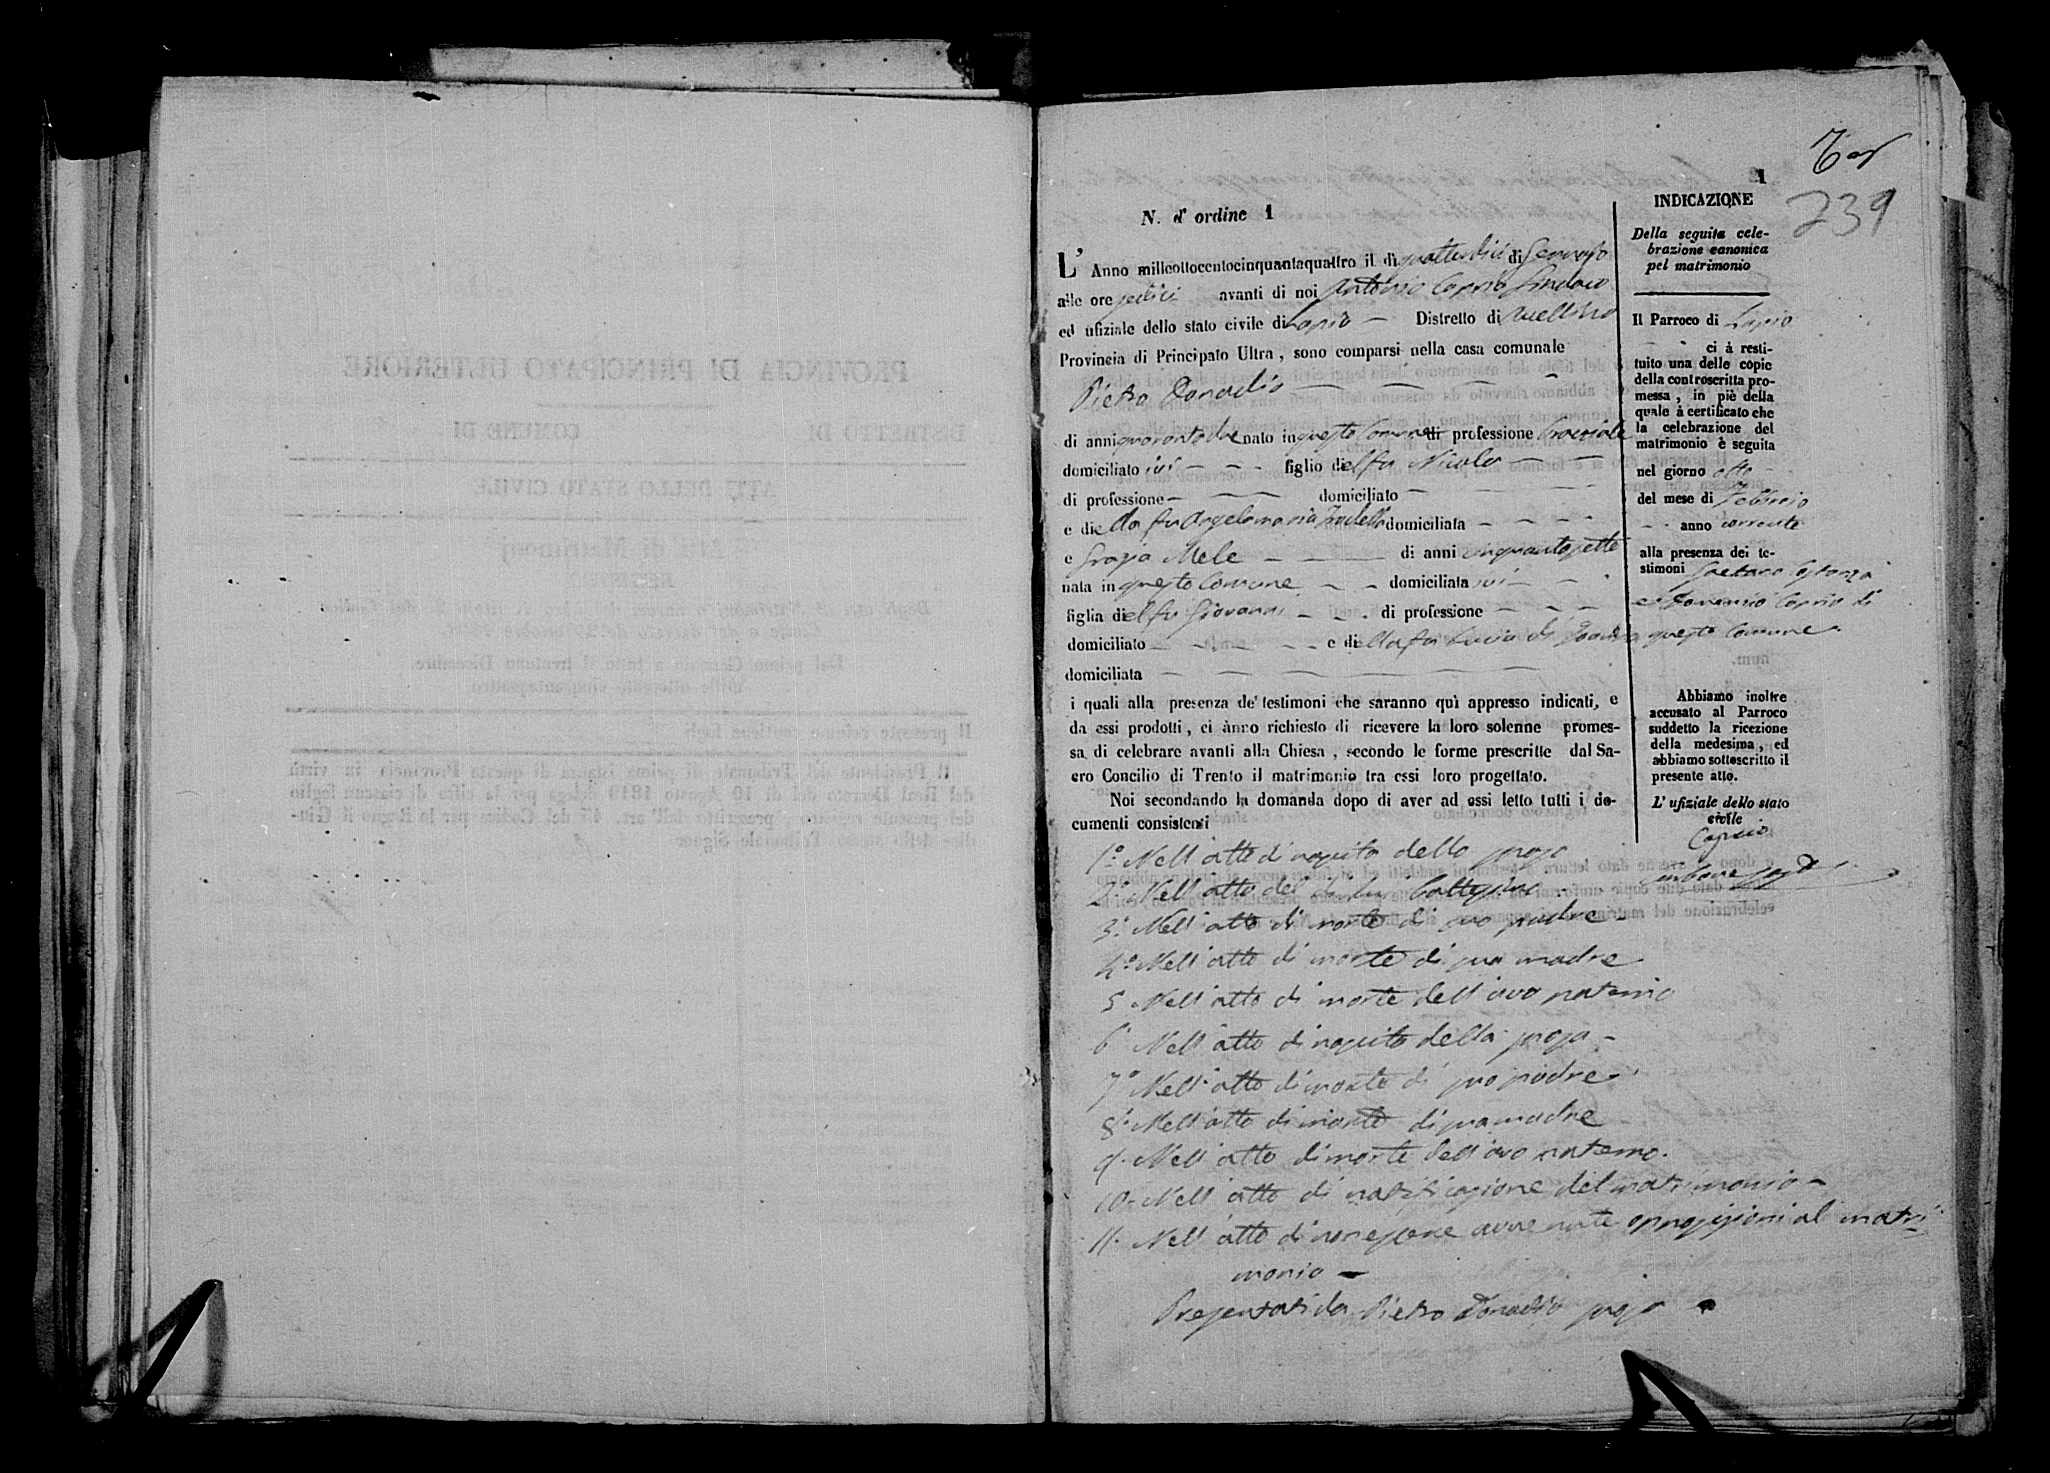 1
239
N. d' ordine 1
L' Anno milleottocentocinquantaquattro il dì quattordici di Gennajo
alle ore sedici avanti di noi Antonio Caprio Sindaco
ed ufiziale dello stato civile di Lapio — Distretto di Avellino
Provincia di Principato Ultra, sono comparsi nella casa comunale
Pietro Donadio — — — —
di anni quarantadue nato in questo Comune di professione Bracciale
domiciliato ivi — — — figlio del fu Nicola — —
di professione — — — domiciliato — — — —
e della fu Angelamaria domiciliata — — — —
e Grazia Mele — — — di anni cinquantasette
nata in questo Comune — — domiciliata ivi — — .
figlia del fu Giovanni — — . di professione — — —
domiciliato — — — — e della fu Lucia di
domiciliata — — — — — — —
i quali alla presenza de' testimoni che saranno quì appresso indicati, e
da essi prodotti, ci ànno richiesto di ricevere la loro solenne promes-
sa di celebrare avanti alla Chiesa, secondo le forme prescritte dal Sa-
cro Concilio di Trento il matrimonio tra essi loro progettato.
Noi secondando la domanda dopo di aver ad essi letto tutti i do-
cumenti consistenti
1º Nell'atto di nascita dello sposo
2º Nell'atto del di lui
3º Nell'atto di morte di suo padre —
4º Nell'atto di morte di sua madre
5 Nell'atto di morte dell'avo paterno
6º Nell'atto di nascita della sposa —
7º Nell'atto di morte di suo padre
8º Nell'atto di morte di sua madre
9. Nell'atto di morte dell'avo paterno.
10. Nell'atto di notificazione del matrimonio —
11. Nell'atto di non essere avvenute opposizioni al matri
monio —
Presentati da Pietro Donadio sposo
INDICAZIONE
Della seguita cele-
brazione canonica
pel matrimonio
Il Parroco di Lapio
ci à resti-
tuito una delle copie
della controscritta pro-
messa, in piè della
quale à certificato che
la celebrazione del
matrimonio è seguita
nel giorno otto —
del mese di Febbraio
— anno corrente
alla presenza dei te-
stimoni Gaetano Costanza
e Domenico Caprio di
questo Comune.
Abbiamo inoltre
accusato al Parroco
suddetto la ricezione
della medesima, ed
abbiamo sottoscritto il
presente atto.
L' ufiziale dello stato
civile
Caprio